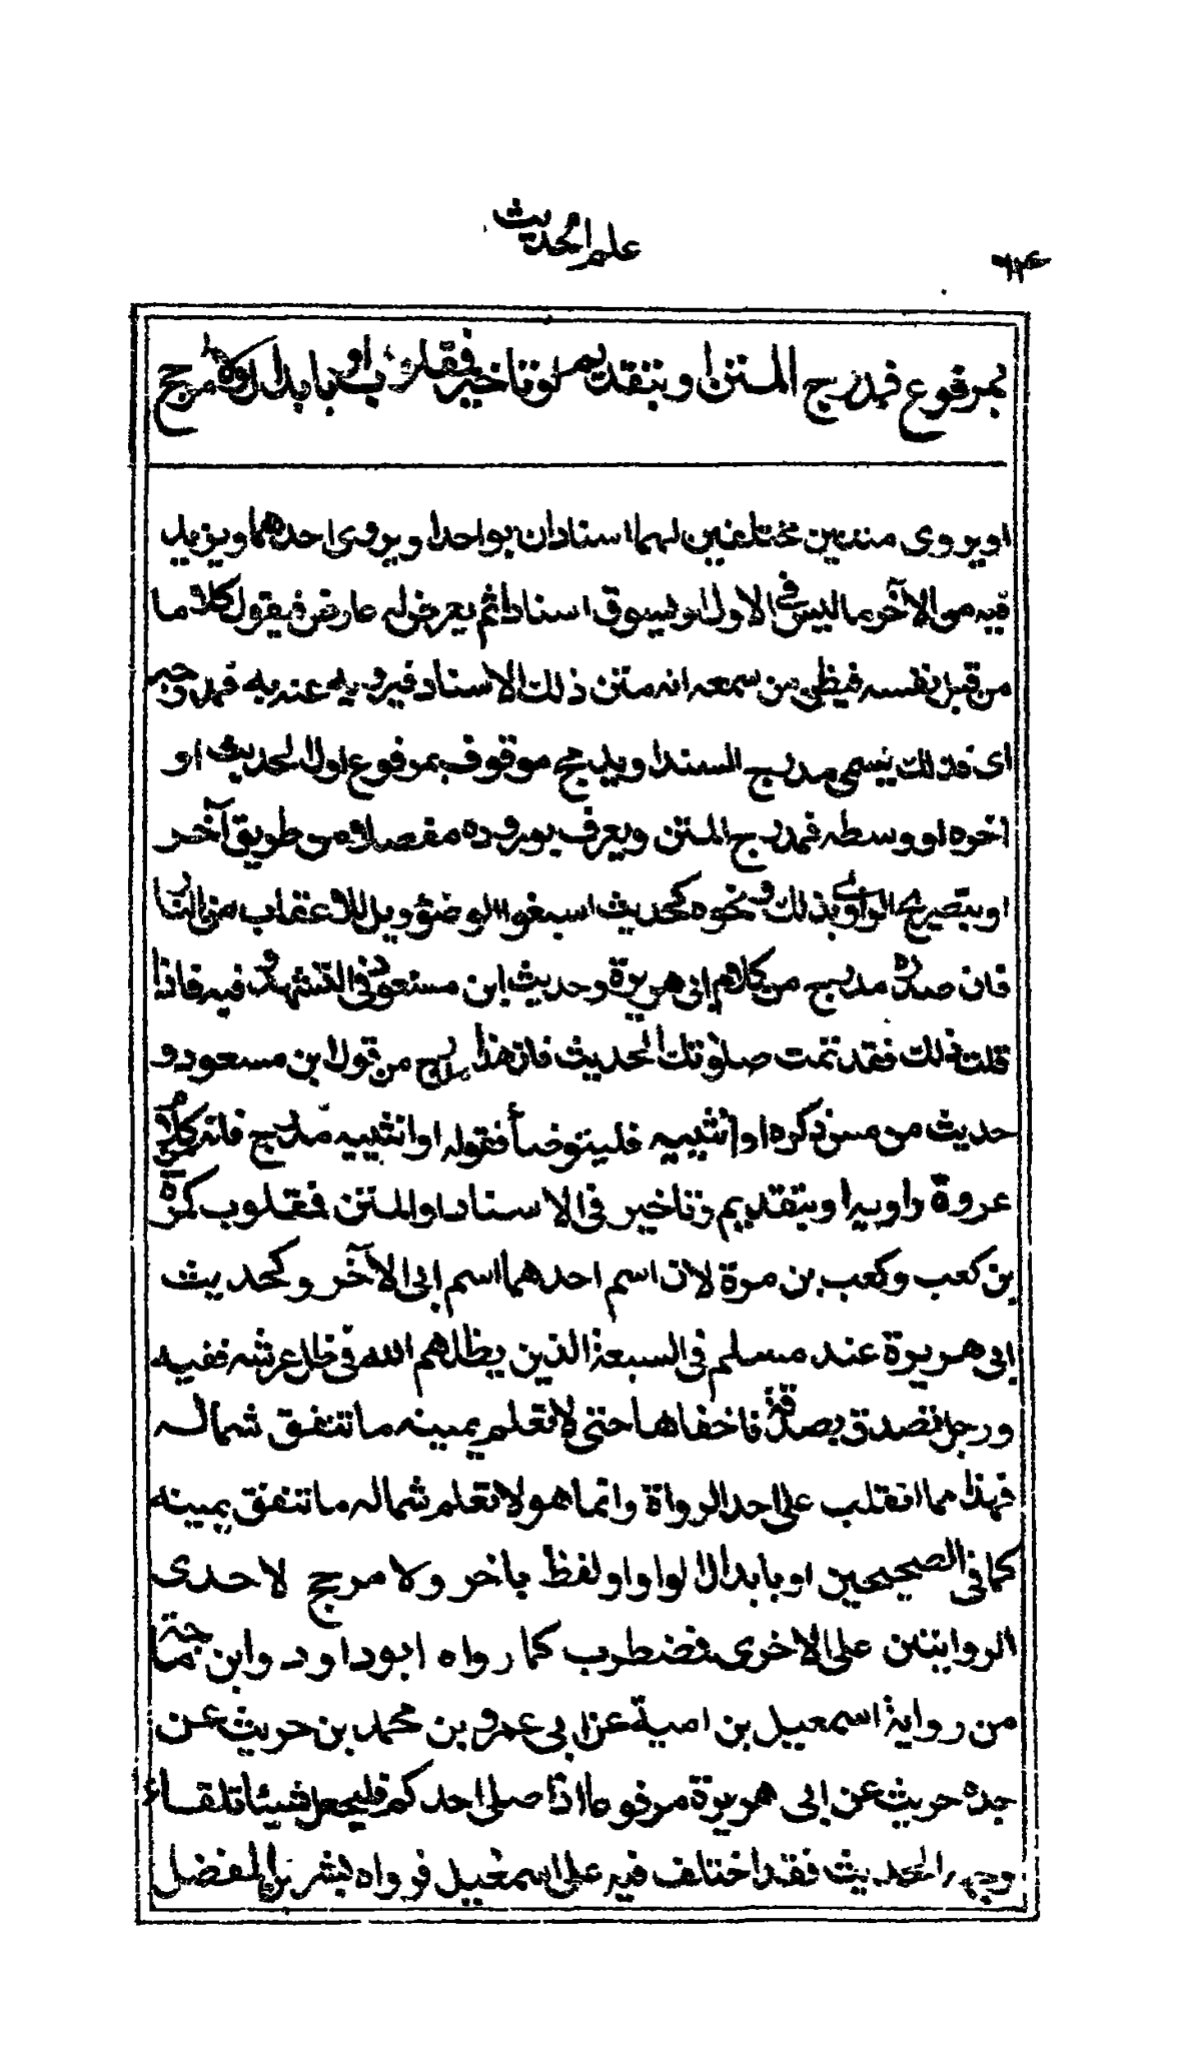 علم الحديث
١٢٤
بمرفوع فمدرج المتن او بتقديم او تاخير فمقلوب او بابدال ولا مرجح
او يروى متنين مختلفين لهما اسنادان بواحد او يروى احدهما ويزيد
فيه من الآخر ما ليس فى الاول او يسوق اسنادا ثم يعرض له عارض فيقول كلاما
من قبل نفسه فيظن من سمعه انه متن ذلك الاسناد فيرويه عنه به فمدرجه
اى فذلك يسمى مدرج السند او يدمج موقوف بمرفوع اول الحديث او
اخره او وسطه فمدرج المتن ويعرف بوروده مفصلا من طريق آخر
او بتصريح الراوى بذلك ونحوه كحديث اسبغوا الوضوء ويل للاعقاب من النار
فان صدره مدرج من كلام ابى هريرة وحديث ابن مسعود فى التشهد وفيه فاذا
قلت ذلك فقد تمت صلوتك الحديث فان هذا مدرج من قول ابن مسعود و
حديث من مس ذكره او انثييه فليتوضأ فقوله او انثييه مدرج فانه كلام من
عروة راويه او بتقديم وتاخير فى الاسناد او المتن فمقلوب كمرة
بن كعب وكعب بن مرة لان اسم احدهما اسم ابى الآخر وكحديث
ابى هريرة عند مسلم فى السبعة الذين يظلهم الله فى ظل عرشه ففيه
ورجل تصدق بصدقة فاخفاها حتى لا تعلم يمينه ما تنفق شماله
فهذا مما انقلب على احد الرواة وانما هو لا تعلم شماله ما تنفق يمينه
كما فى الصحيحين او بابدال الواو او لفظ باخر ولا مرجح لاحدى
الروايتين على الاخرى فمضطرب كما رواه ابو داود وابن ماجة
من رواية اسمعيل بن امية عن ابى عمرو بن محمد بن حريث عن
جده حريث عن ابى هريرة مرفوعا اذا صلى احدكم فليجعل شيئا تلقاء
وجهه الحديث فقد اختلف فيه على اسمعيل فرواه بشر بن المفضل